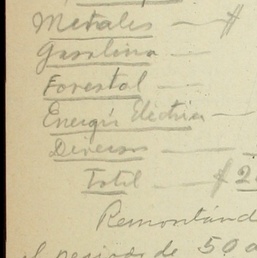 Metales — $
Gasolina —
Forestal —
Energía Eléctrica —
Diversos —
Total — $ 2
Remontánd
el periodo de 50 a